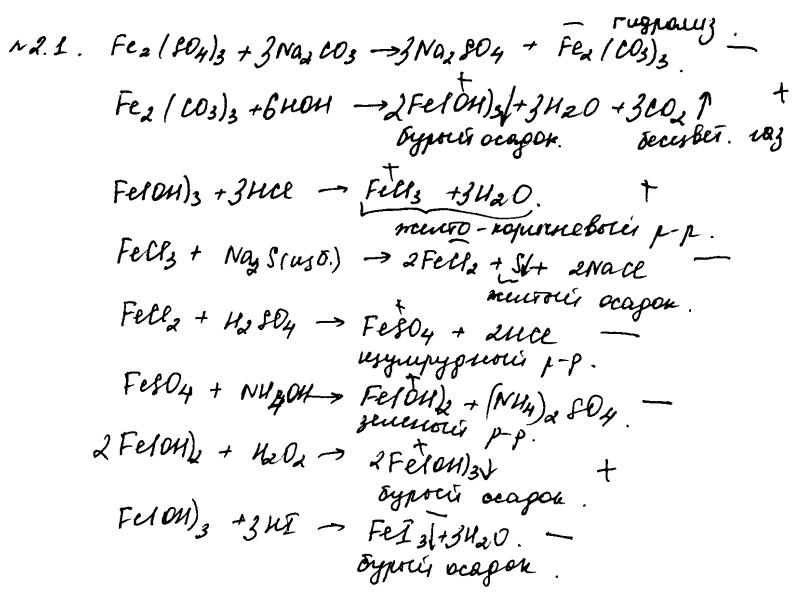 гидролиз.
№2.1. Fe₂(SO₄)₃ + 3Na₂CO₃ → 3Na₂SO₄ + Fe₂(CO₃)₃. —
Fe₂(CO₃)₃ + 6HOH → 2Fe(OH)₃↓ + 3H₂O + 3CO₂↑ +
бурый осадок. бесцвет. газ
Fe(OH)₃ + 3HCl → FeCl₃ + 3H₂O. +
желто-коричневый р-р.
FeCl₃ + Na₂S(изб.) → 2FeCl₂ + S↓ + 2NaCl —
желтый осадок.
FeCl₂ + H₂SO₄ → FeSO₄ + 2HCl —
изумрудный р-р.
FeSO₄ + NH₄OH → Fe(OH)₂ + (NH₄)₂SO₄. —
зеленый р-р.
2Fe(OH)₂ + H₂O₂ → 2Fe(OH)₃↓ +
бурый осадок.
Fe(OH)₃ + 3HI → FeI₃↓ + 3H₂O. —
бурый осадок.